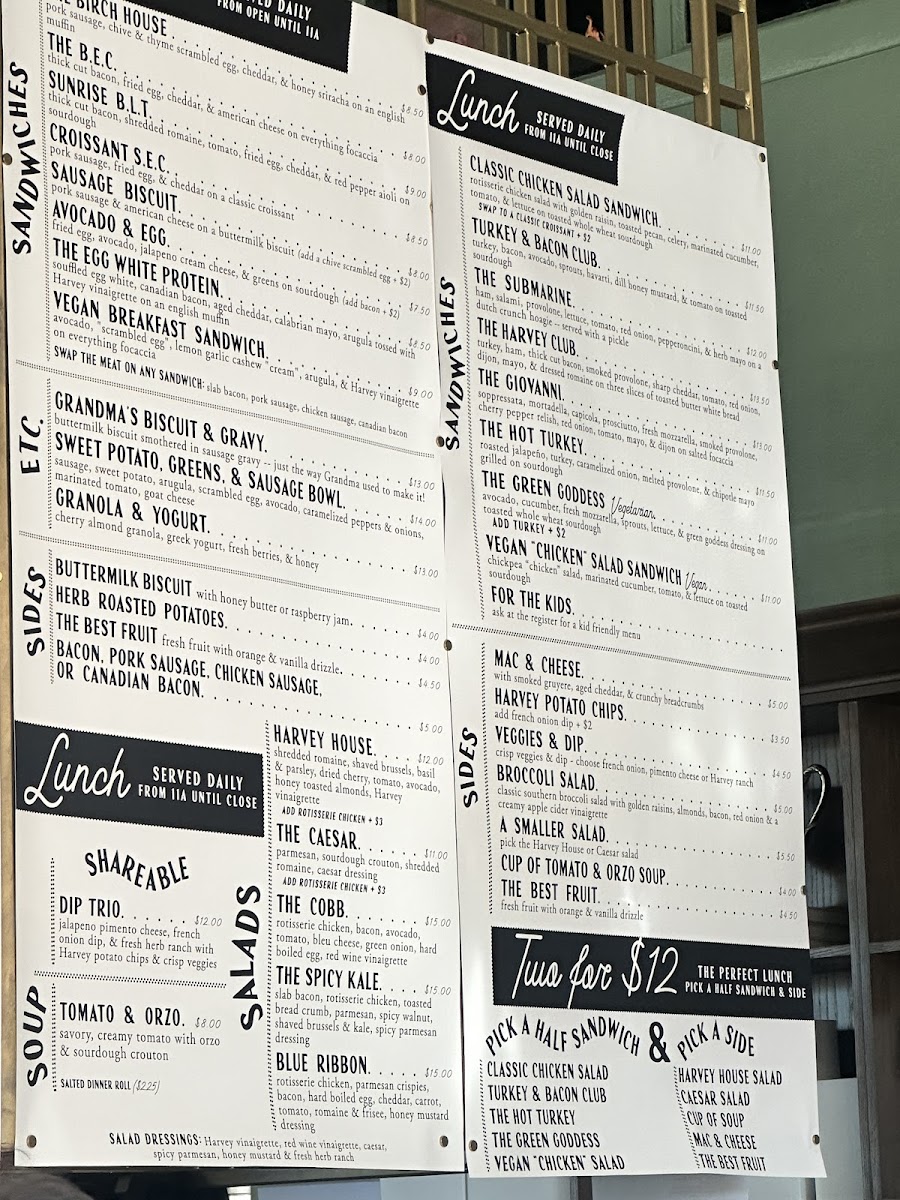 SERVED DAILY
FROM OPEN UNTIL 11A
SANDWICHES
BIRCH HOUSE
pork sausage, chive & thyme scrambled egg, cheddar, & honey sriracha on an english
muffin
$8.50
THE B.E.C.
thick cut bacon, fried egg, cheddar, & american cheese on everything focaccia
$8.00
SUNRISE B.L.T.
thick cut bacon, shredded romaine, tomato, fried egg, cheddar, & red pepper aioli on
sourdough
$9.00
CROISSANT S.E.C.
pork sausage, fried egg, & cheddar on a classic croissant
$8.50
SAUSAGE BISCUIT.
pork sausage & american cheese on a buttermilk biscuit (add a chive scrambled egg + $2)
$8.00
AVOCADO & EGG.
fried egg, avocado, jalapeno cream cheese, & greens on sourdough (add bacon + $2)
$7.50
THE EGG WHITE PROTEIN.
souffled egg white, canadian bacon, aged cheddar, calabrian mayo, arugula tossed with
Harvey vinaigrette on an english muffin
$8.50
VEGAN BREAKFAST SANDWICH.
avocado, "scrambled egg", lemon garlic cashew "cream", arugula, & Harvey vinaigrette
on everything focaccia
$9.00
SWAP THE MEAT ON ANY SANDWICH: slab bacon, pork sausage, chicken sausage, canadian bacon
ETC.
GRANDMA'S BISCUIT & GRAVY.
buttermilk biscuit smothered in sausage gravy -- just the way Grandma used to make it!
$13.00
SWEET POTATO, GREENS, & SAUSAGE BOWL.
sausage, sweet potato, arugula, scrambled egg, avocado, caramelized peppers & onions,
marinated tomato, goat cheese
$14.00
GRANOLA & YOGURT.
cherry almond granola, greek yogurt, fresh berries, & honey
$13.00
SIDES
BUTTERMILK BISCUIT with honey butter or raspberry jam. $4.00
HERB ROASTED POTATOES. $4.00
THE BEST FRUIT fresh fruit with orange & vanilla drizzle. $4.50
BACON, PORK SAUSAGE, CHICKEN SAUSAGE,
OR CANADIAN BACON. $5.00
Lunch SERVED DAILY
FROM 11A UNTIL CLOSE
SHAREABLE
DIP TRIO. $12.00
jalapeno pimento cheese, french
onion dip, & fresh herb ranch with
Harvey potato chips & crisp veggies
SOUP
TOMATO & ORZO. $8.00
savory, creamy tomato with orzo
& sourdough crouton
SALTED DINNER ROLL ($2.25)
SALADS
HARVEY HOUSE. $12.00
shredded romaine, shaved brussels, basil
& parsley, dried cherry, tomato, avocado,
honey toasted almonds, Harvey
vinaigrette
ADD ROTISSERIE CHICKEN + $3
THE CAESAR. $11.00
parmesan, sourdough crouton, shredded
romaine, caesar dressing
ADD ROTISSERIE CHICKEN + $3
THE COBB. $15.00
rotisserie chicken, bacon, avocado,
tomato, bleu cheese, green onion, hard
boiled egg, red wine vinaigrette
THE SPICY KALE. $15.00
slab bacon, rotisserie chicken, toasted
bread crumb, parmesan, spicy walnut,
shaved brussels & kale, spicy parmesan
dressing
BLUE RIBBON. $15.00
rotisserie chicken, parmesan crispies,
bacon, hard boiled egg, cheddar, carrot,
tomato, romaine & frisee, honey mustard
dressing
SALAD DRESSINGS: Harvey vinaigrette, red wine vinaigrette, caesar,
spicy parmesan, honey mustard & fresh herb ranch
Lunch SERVED DAILY
FROM 11A UNTIL CLOSE
SANDWICHES
CLASSIC CHICKEN SALAD SANDWICH. $11.00
rotisserie chicken salad with golden raisin, toasted pecan, celery, marinated cucumber,
tomato, & lettuce on toasted whole wheat sourdough
SWAP TO A CLASSIC CROISSANT + $2
TURKEY & BACON CLUB. $11.50
turkey, bacon, avocado, sprouts, havarti, dill honey mustard, & tomato on toasted
sourdough
THE SUBMARINE. $12.00
ham, salami, provolone, lettuce, tomato, red onion, pepperoncini, & herb mayo on a
dutch crunch hoagie -- served with a pickle
THE HARVEY CLUB. $13.50
turkey, ham, thick cut bacon, smoked provolone, sharp cheddar, tomato, red onion,
dijon, mayo, & dressed romaine on three slices of toasted butter white bread
THE GIOVANNI. $13.00
soppressata, mortadella, capicola, prosciutto, fresh mozzarella, smoked provolone,
cherry pepper relish, red onion, tomato, mayo, & dijon on salted focaccia
THE HOT TURKEY. $11.50
roasted jalapeño, turkey, caramelized onion, melted provolone, & chipotle mayo
grilled on sourdough
THE GREEN GODDESS Vegetarian. $11.00
avocado, cucumber, fresh mozzarella, sprouts, lettuce, & green goddess dressing on
toasted whole wheat sourdough
ADD TURKEY + $2
VEGAN "CHICKEN" SALAD SANDWICH Vegan. $11.00
chickpea "chicken" salad, marinated cucumber, tomato, & lettuce on toasted
sourdough
FOR THE KIDS.
ask at the register for a kid friendly menu
SIDES
MAC & CHEESE. $5.00
with smoked gruyere, aged cheddar, & crunchy breadcrumbs
HARVEY POTATO CHIPS. $3.50
add french onion dip + $2
VEGGIES & DIP. $4.50
crisp veggies & dip - choose french onion, pimento cheese or Harvey ranch
BROCCOLI SALAD. $5.00
classic southern broccoli salad with golden raisins, almonds, bacon, red onion & a
creamy apple cider vinaigrette
A SMALLER SALAD. $5.50
pick the Harvey House or Caesar salad
CUP OF TOMATO & ORZO SOUP. $4.00
THE BEST FRUIT. $4.50
fresh fruit with orange & vanilla drizzle
Two for $12 THE PERFECT LUNCH
PICK A HALF SANDWICH & SIDE
PICK A HALF SANDWICH & PICK A SIDE
CLASSIC CHICKEN SALAD
TURKEY & BACON CLUB
THE HOT TURKEY
THE GREEN GODDESS
VEGAN "CHICKEN" SALAD
HARVEY HOUSE SALAD
CAESAR SALAD
CUP OF SOUP
MAC & CHEESE
THE BEST FRUIT